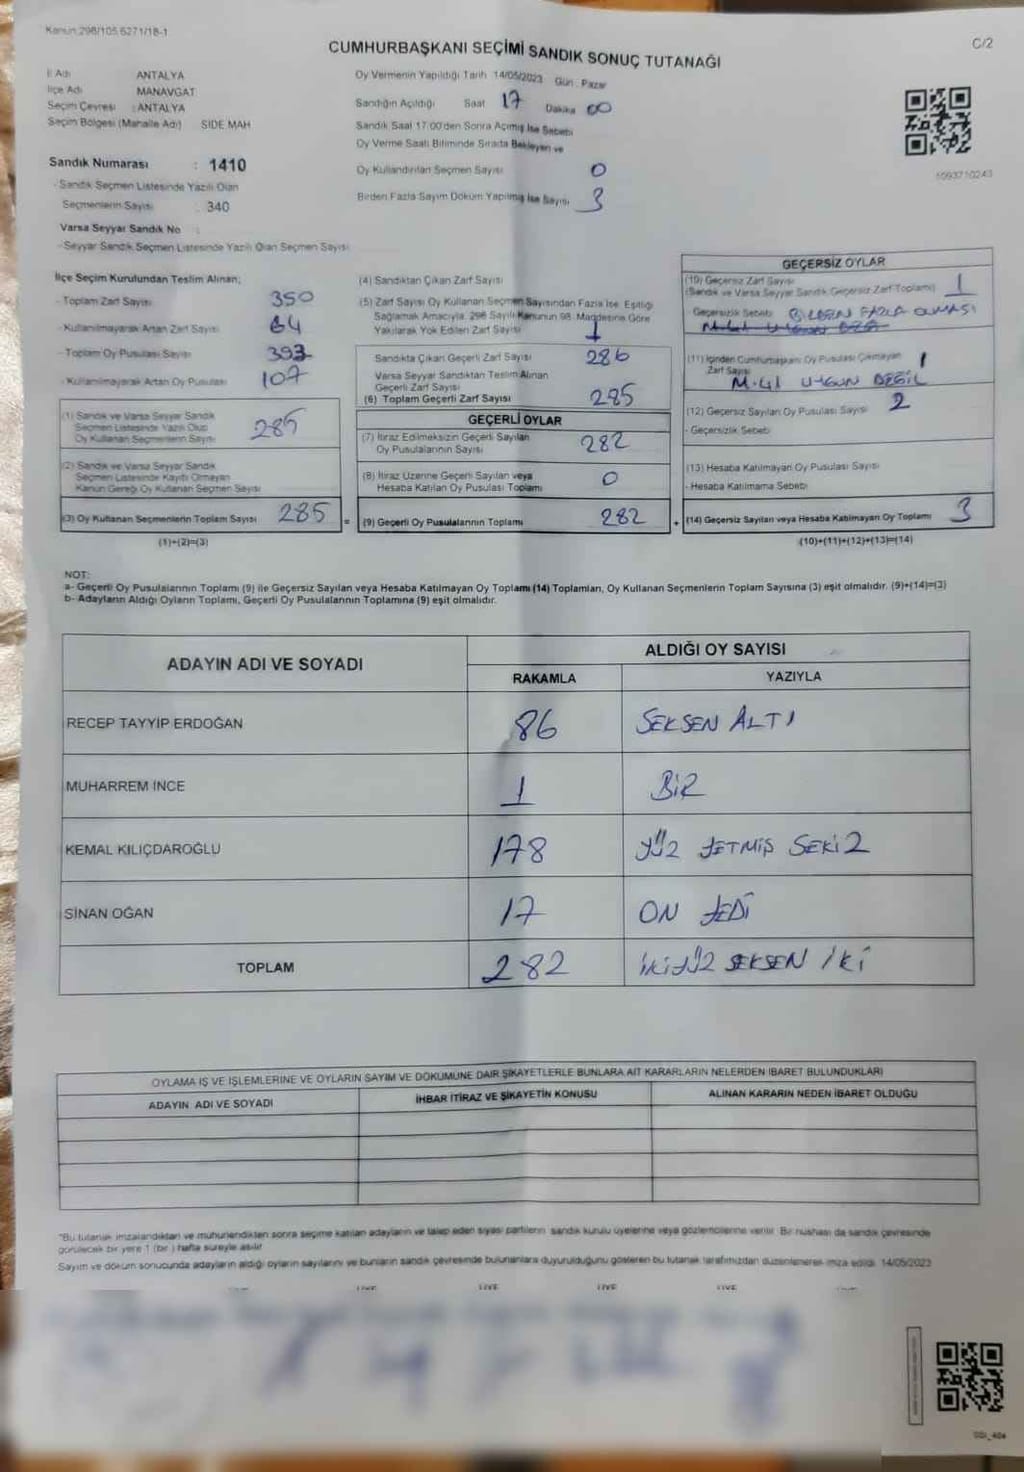 Kanun 298/105.6271/18-1
C/2
CUMHURBAŞKANI SEÇİMİ SANDIK SONUÇ TUTANAĞI
İl Adı ANTALYA
İlçe Adı MANAVGAT
Seçim Çevresi : ANTALYA
Seçim Bölgesi (Mahalle Adı) SIDE MAH
Sandık Numarası : 1410
- Sandık Seçmen Listesinde Yazılı Olan
Seçmenlerin Sayısı : 340
Varsa Seyyar Sandık No :
- Seyyar Sandık Seçmen Listesinde Yazılı Olan Seçmen Sayısı
Oy Vermenin Yapıldığı Tarih 14/05/2023 Gün : Pazar
Sandığın Açıldığı Saat 17 Dakika 00
Sandık Saat 17:00'den Sonra Açılmış İse Sebebi
Oy Verme Saati Bitiminde Sırada Bekleyen ve
Oy Kullandırılan Seçmen Sayısı 0
Birden Fazla Sayım Döküm Yapılmış İse Sayısı 3
1093710243
İlçe Seçim Kurulundan Teslim Alınan;
- Toplam Zarf Sayısı 350
- Kullanılmayarak Artan Zarf Sayısı 64
- Toplam Oy Pusulası Sayısı 393
- Kullanılmayarak Artan Oy Pusulası 107
(1) Sandık ve Varsa Seyyar Sandık
Seçmen Listesinde Yazılı Olup
Oy Kullanan Seçmenlerin Sayısı 285
(2) Sandık ve Varsa Seyyar Sandık
Seçmen Listesinde Kaydı Olmayan
Kanun Gereği Oy Kullanan Seçmen Sayısı
(3) Oy Kullanan Seçmenlerin Toplam Sayısı 285 =
(1)+(2)=(3)
(4) Sandıktan Çıkan Zarf Sayısı
(5) Zarf Sayısı Oy Kullanan Seçmen Sayısından Fazla İse, Eşitliği
Sağlamak Amacıyla, 298 Sayılı Kanunun 98. Maddesine Göre
Yakılarak Yok Edilen Zarf Sayısı 1
Sandıkta Çıkan Geçerli Zarf Sayısı 286
Varsa Seyyar Sandıktan Teslim Alınan
Geçerli Zarf Sayısı
(6) Toplam Geçerli Zarf Sayısı 285
GEÇERLİ OYLAR
(7) İtiraz Edilmeksizin Geçerli Sayılan
Oy Pusulalarının Sayısı 282
(8) İtiraz Üzerine Geçerli Sayılan veya
Hesaba Katılan Oy Pusulası Toplamı 0
(9) Geçerli Oy Pusulalarının Toplamı 282 +
GEÇERSİZ OYLAR
(10) Geçersiz Zarf Sayısı
(Sandık ve Varsa Seyyar Sandık Geçersiz Zarf Toplamı) 1
- Geçersizlik Sebebi: BİRDEN FAZLA OLMASI
(11) İçinden Cumhurbaşkanı Oy Pusulası Çıkmayan
Zarf Sayısı 1
M.41 UYGUN DEĞİL
(12) Geçersiz Sayılan Oy Pusulası Sayısı 2
- Geçersizlik Sebebi
(13) Hesaba Katılmayan Oy Pusulası Sayısı
- Hesaba Katılmama Sebebi
(14) Geçersiz Sayılan veya Hesaba Katılmayan Oy Toplamı 3
(10)+(11)+(12)+(13)=(14)
NOT:
a- Geçerli Oy Pusulalarının Toplamı (9) ile Geçersiz Sayılan veya Hesaba Katılmayan Oy Toplamı (14) Toplamları, Oy Kullanan Seçmenlerin Toplam Sayısına (3) eşit olmalıdır. (9)+(14)=(3)
b- Adayların Aldığı Oyların Toplamı, Geçerli Oy Pusulalarının Toplamına (9) eşit olmalıdır.
ADAYIN ADI VE SOYADI
ALDIĞI OY SAYISI
RAKAMLA YAZIYLA
RECEP TAYYİP ERDOĞAN 86 SEKSEN ALTI
MUHARREM İNCE 1 BİR
KEMAL KILIÇDAROĞLU 178 YÜZ YETMİŞ SEKİZ
SİNAN OĞAN 17 ON YEDİ
TOPLAM 282 İKİYÜZ SEKSEN İKİ
OYLAMA İŞ VE İŞLEMLERİNE VE OYLARIN SAYIM VE DÖKÜMÜNE DAİR ŞİKAYETLERLE BUNLARA AİT KARARLARIN NELERDEN İBARET BULUNDUKLARI
ADAYIN ADI VE SOYADI İHBAR İTİRAZ VE ŞİKAYETİN KONUSU ALINAN KARARIN NEDEN İBARET OLDUĞU
"Bu tutanak imzalandıktan ve mühürlendikten sonra seçime katılan adayların ve talep eden siyasi partilerin sandık kurulu üyelerine veya gözlemcilerine verilir. Bir nüshası da sandık çevresinde
görülecek bir yere 1 (bir) hafta süreyle asılır.
Sayım ve döküm sonucunda adayların aldığı oyların sayılarını ve bunların sandık çevresinde bulunanlara duyurulduğunu gösteren bu tutanak tarafımızdan düzenlenerek imza edildi. 14/05/2023
ÜYE ÜYE ÜYE ÜYE